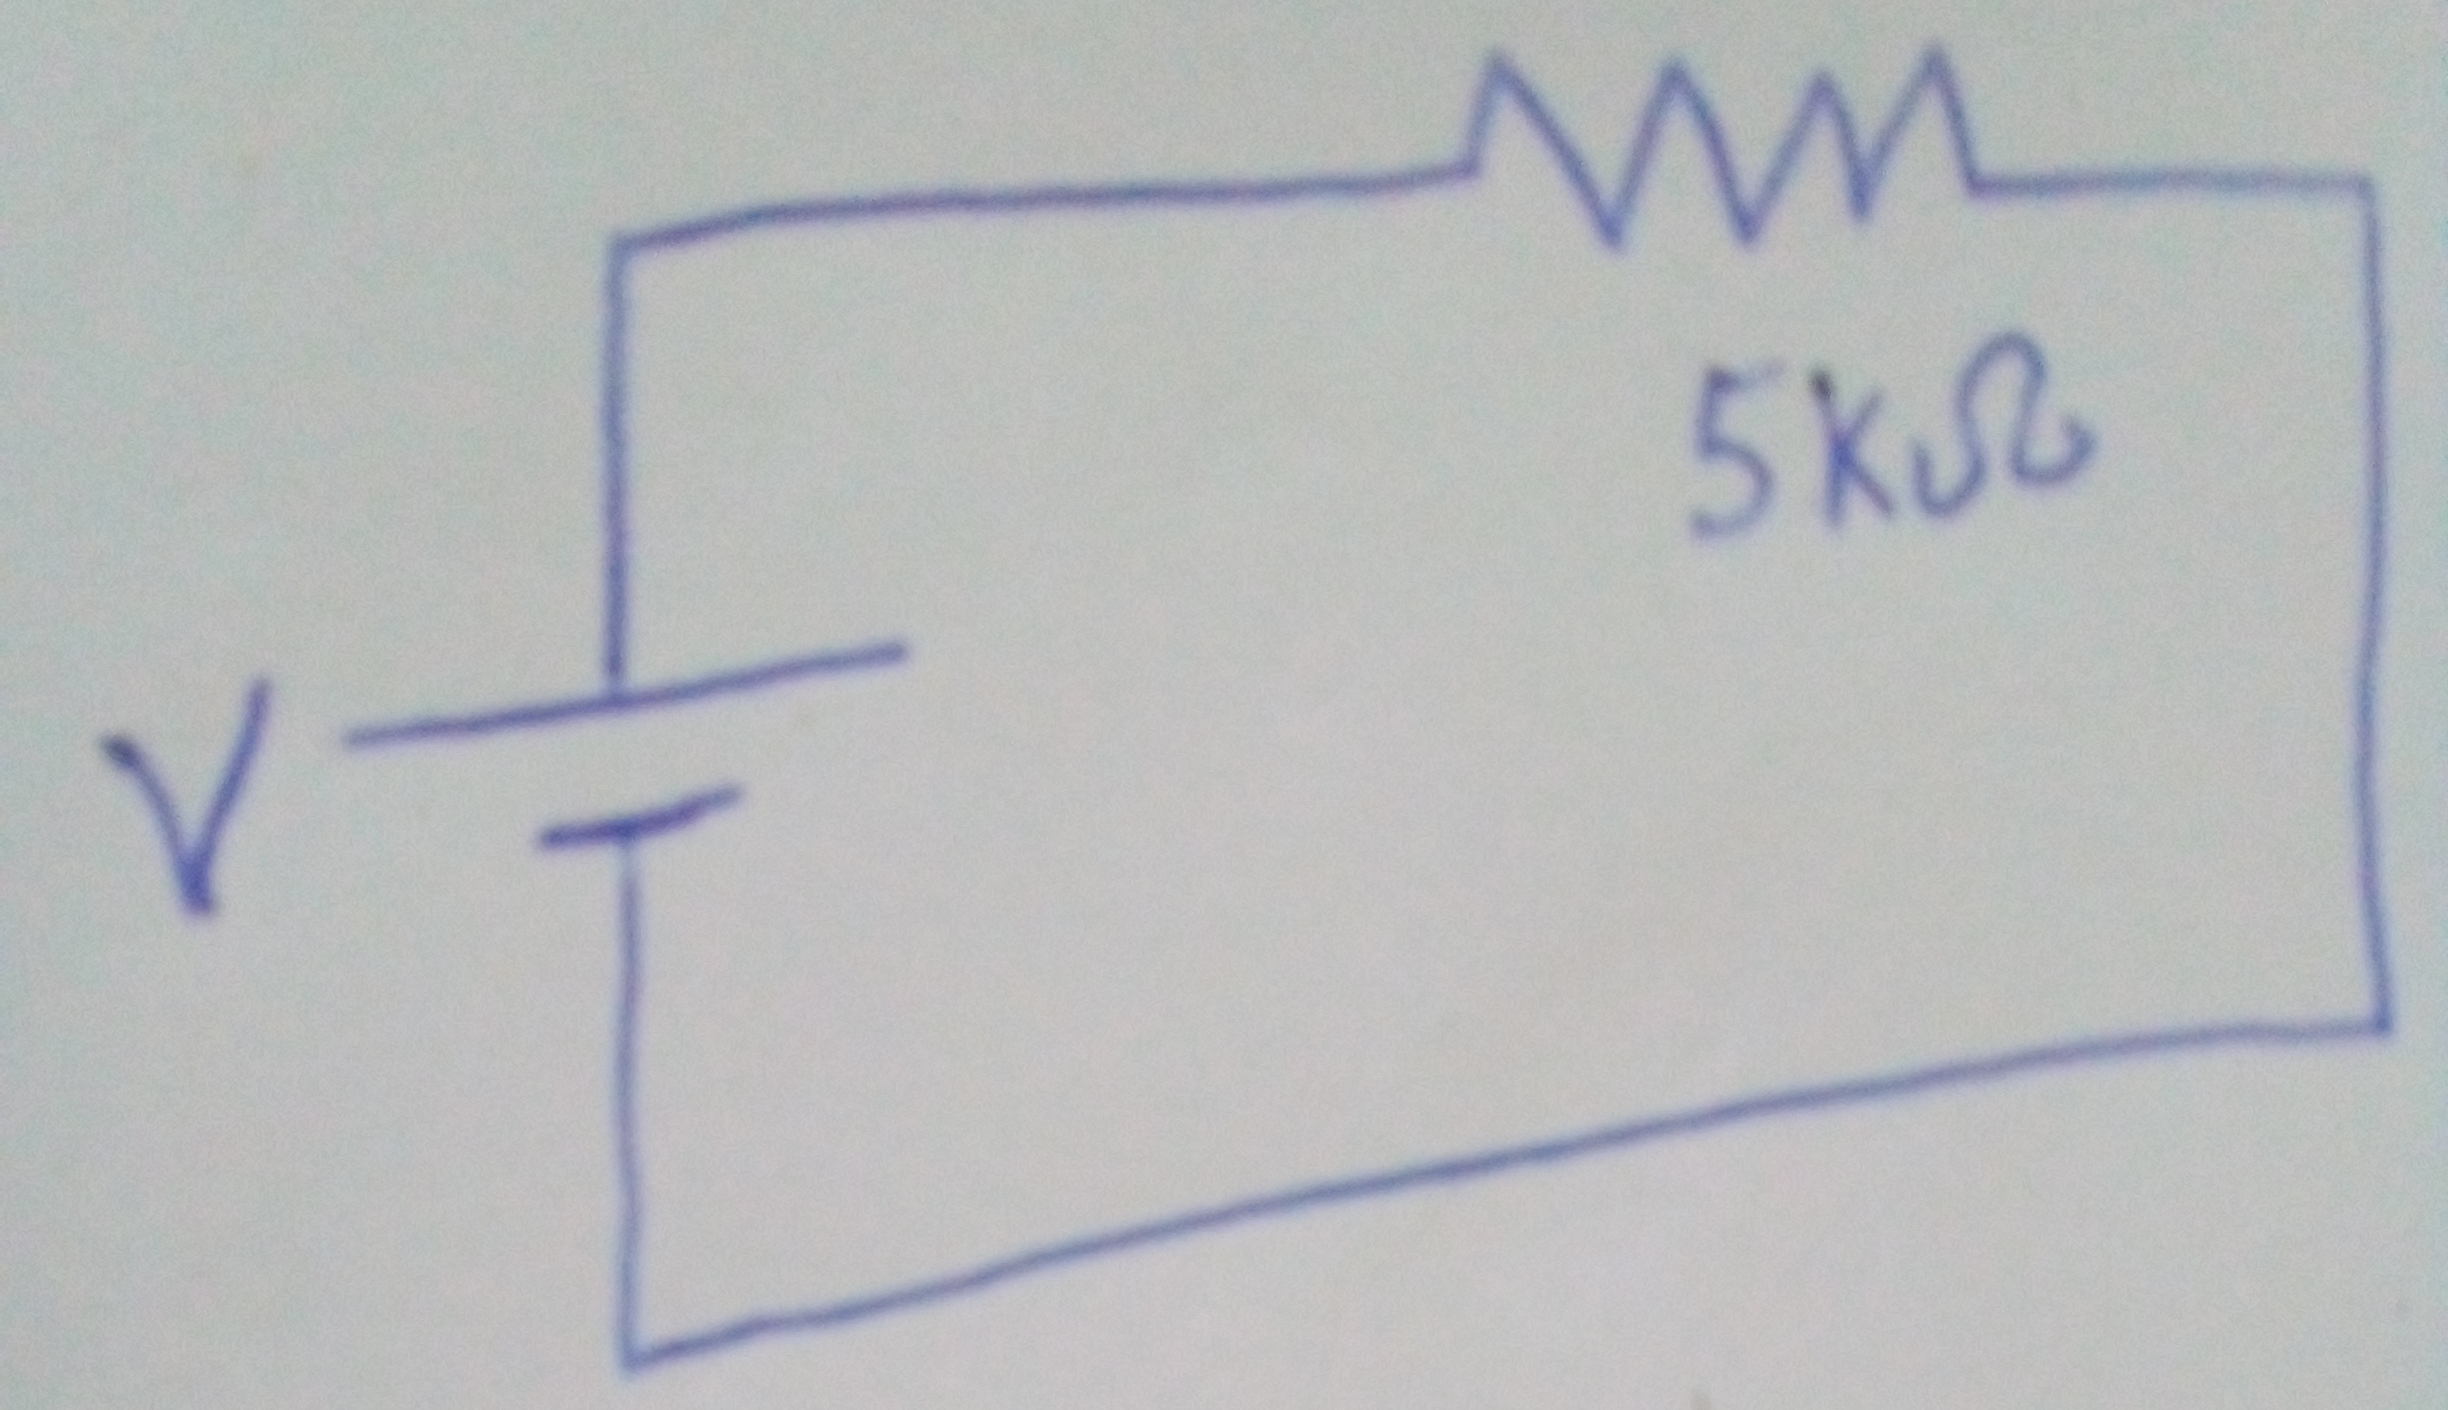 5KΩ
V